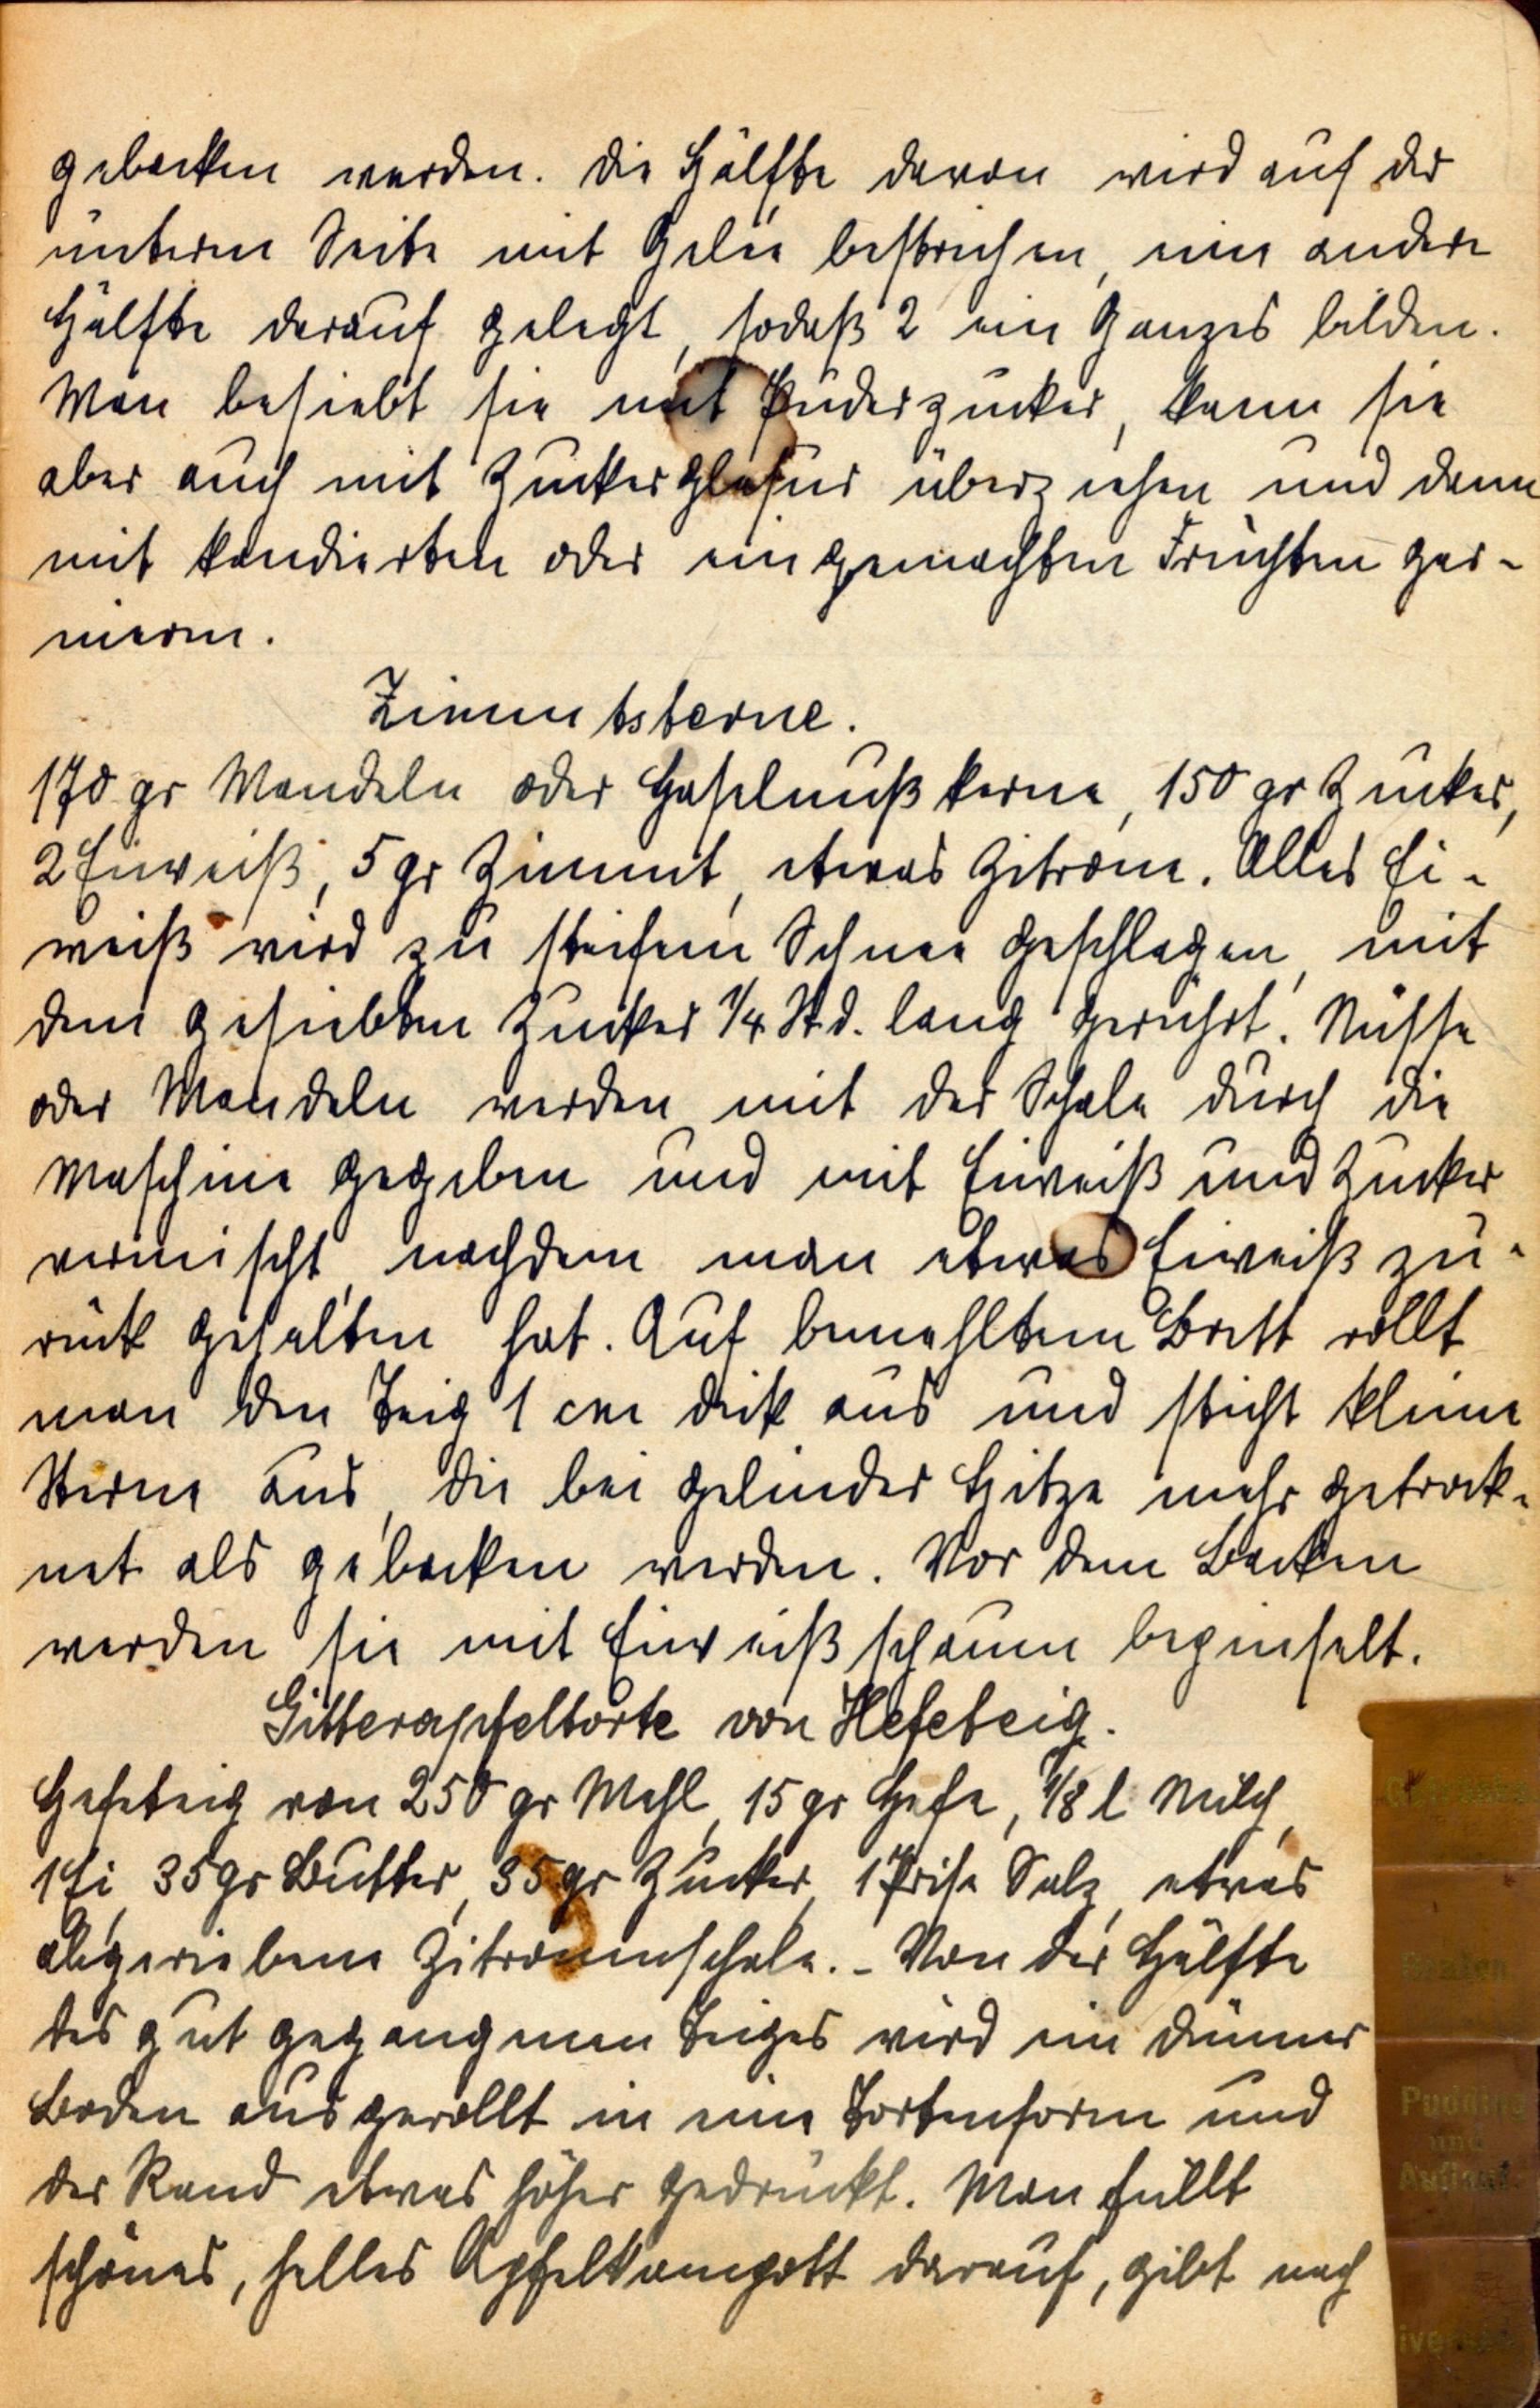 gebacken werden. Die Hälfte davon wird auf der
unteren Seite mit Gelee bestrichen, eine andere
Hälfte darauf gelegt, sodaß 2 ein Ganzes bilden.
Man besiebt sie mit Puderzucker, kann sie
aber auch mit Zuckerglasur überziehen und dann
mit kandierten oder eingemachten Früchten gar-
nieren.
Zimmtsterne.
170 gr Mandeln oder Haselnußkerne, 150 gr Zucker,
2 Eiweiß, 5 gr Zimmt, etwas Zitrone. Alles Ei-
weiß wird zu steifem Schnee geschlagen, mit
dem gesiebten Zucker 1/4 Std. lang gerührt. Nüsse
oder Mandeln werden mit der Schale durch die
Maschine gegeben und mit Eiweiß und Zucker
vermischt, nachdem man etwas Eiweiß zu-
rück gehalten hat. Auf bemehltem Brett rollt
man den Teig 1 cm dick aus und sticht kleine
Sterne aus, die bei gelinder Hitze mehr getrock-
net als gebacken werden. Vor dem Backen
werden sie mit Eiweißschaum bepinselt.
Gitterapfeltorte von Hefeteig.
Hefeteig von 250 gr Mehl, 15 gr Hefe, 1/8 l Milch,
1 Ei, 35 gr Butter, 35 gr Zucker, 1 Prise Salz, etwas
abgeriebene Zitronenschale. - Von der Hälfte
des gut gegangenen Teiges wird ein dünner
Boden ausgerollt in eine Tortenform und
der Rand etwas höher gedrückt. Man füllt
schönes, helles Apfelkompott darauf, gibt nach
Getränke
Braten
Pudding
und
Auflauf.